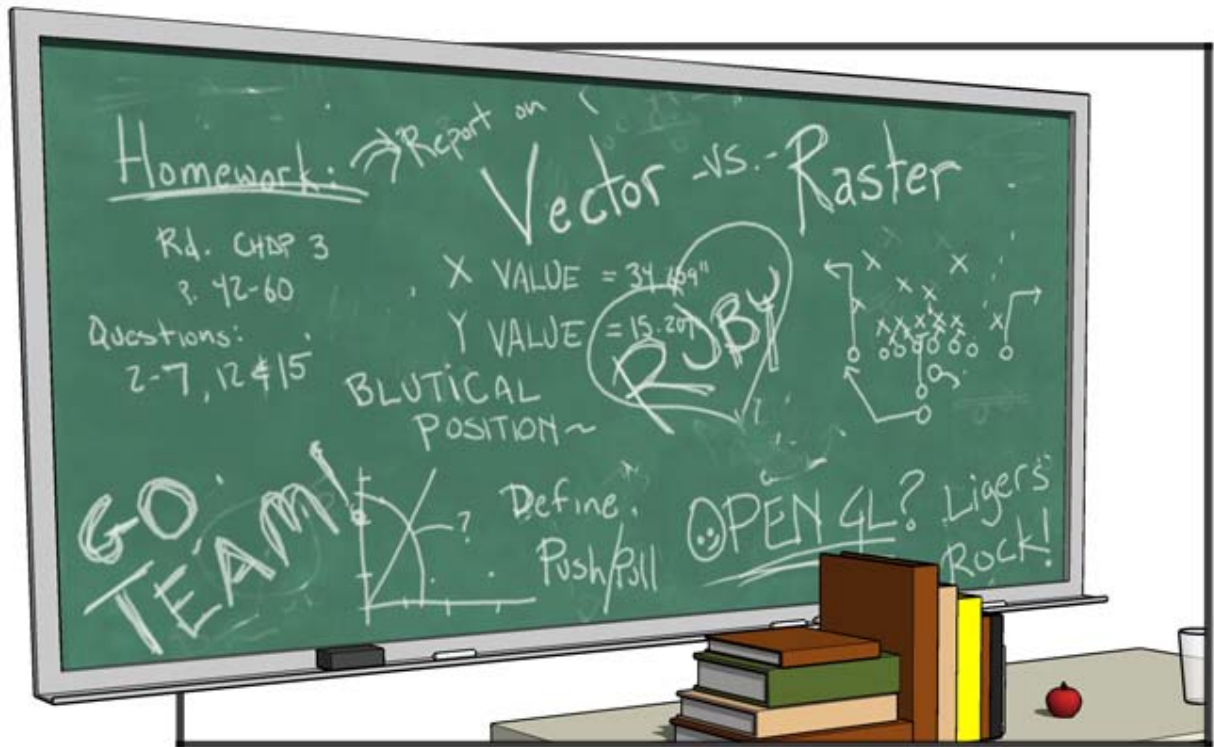 Homework:
Report on
Vector -vs.- Raster
Rd. CHAP 3
P. 42-60
Questions:
2-7, 12 & 15
X VALUE = 34.609"
Y VALUE = 15.207
RJBY
BLUTICAL
POSITION~
GO
TEAM!
?
Define.
Push/Pull
OPEN GL?
Ligers
Rock!